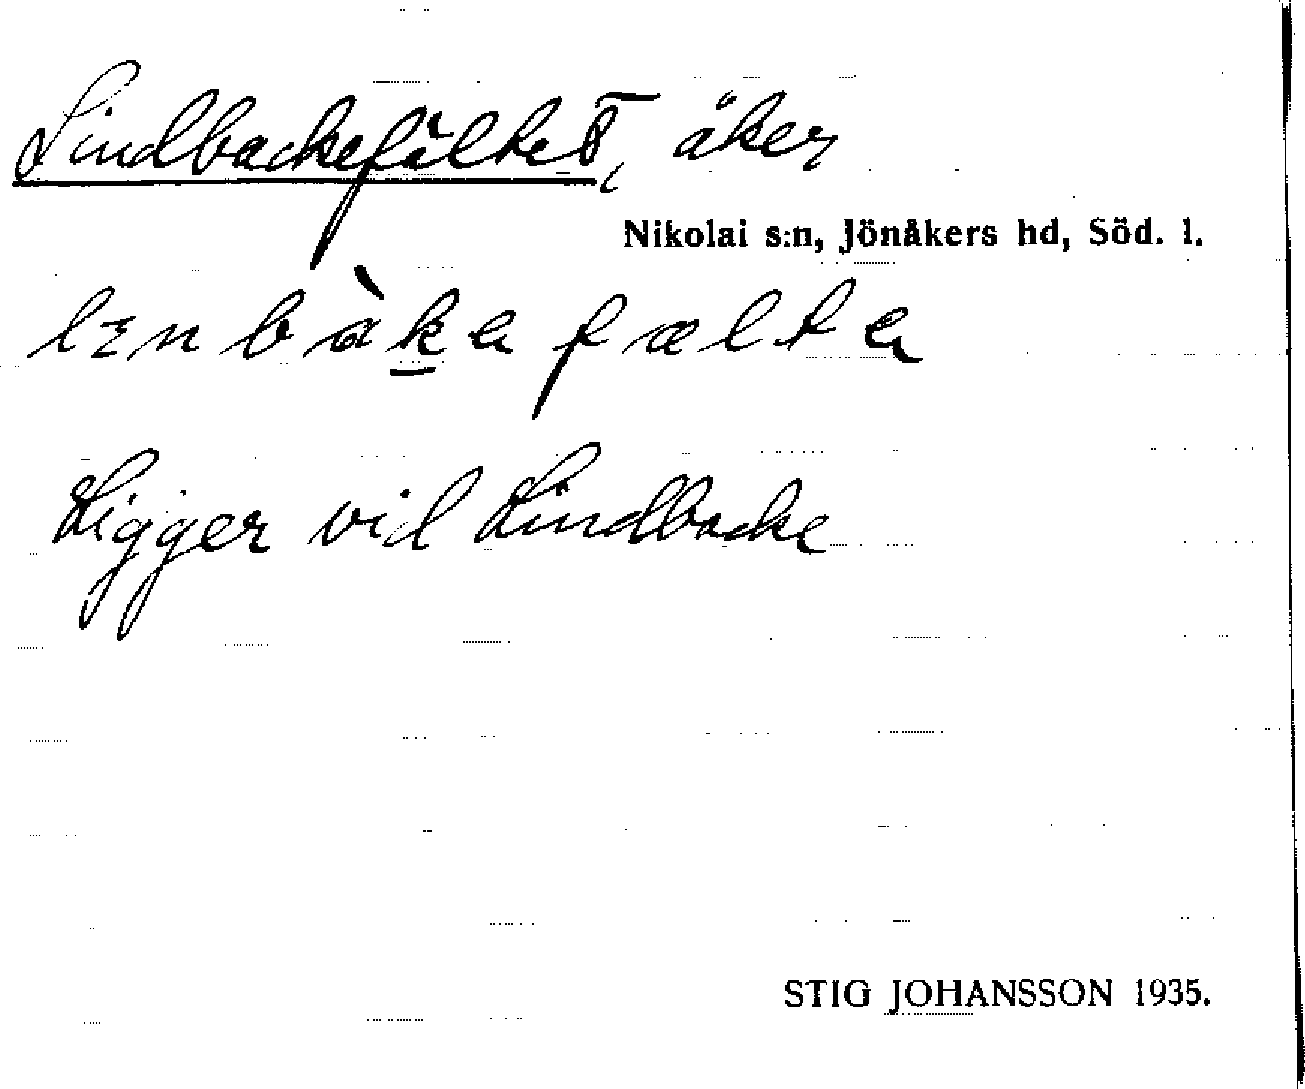 Lindbackefältet, åker
Nikolai s:n, Jönåkers hd, Söd. l.
lɪnbàkefælte
Ligger vid Lindbacke
STIG JOHANSSON 1935.